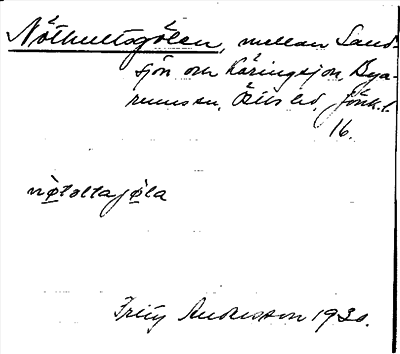 Nöthultsgölen, mellan Sand-
sjön och Käringsjön, Bya-
rums sn, Östbo hd, Jönk. l.
16.
nøtoltajøla
Fritz Andersson 1930.